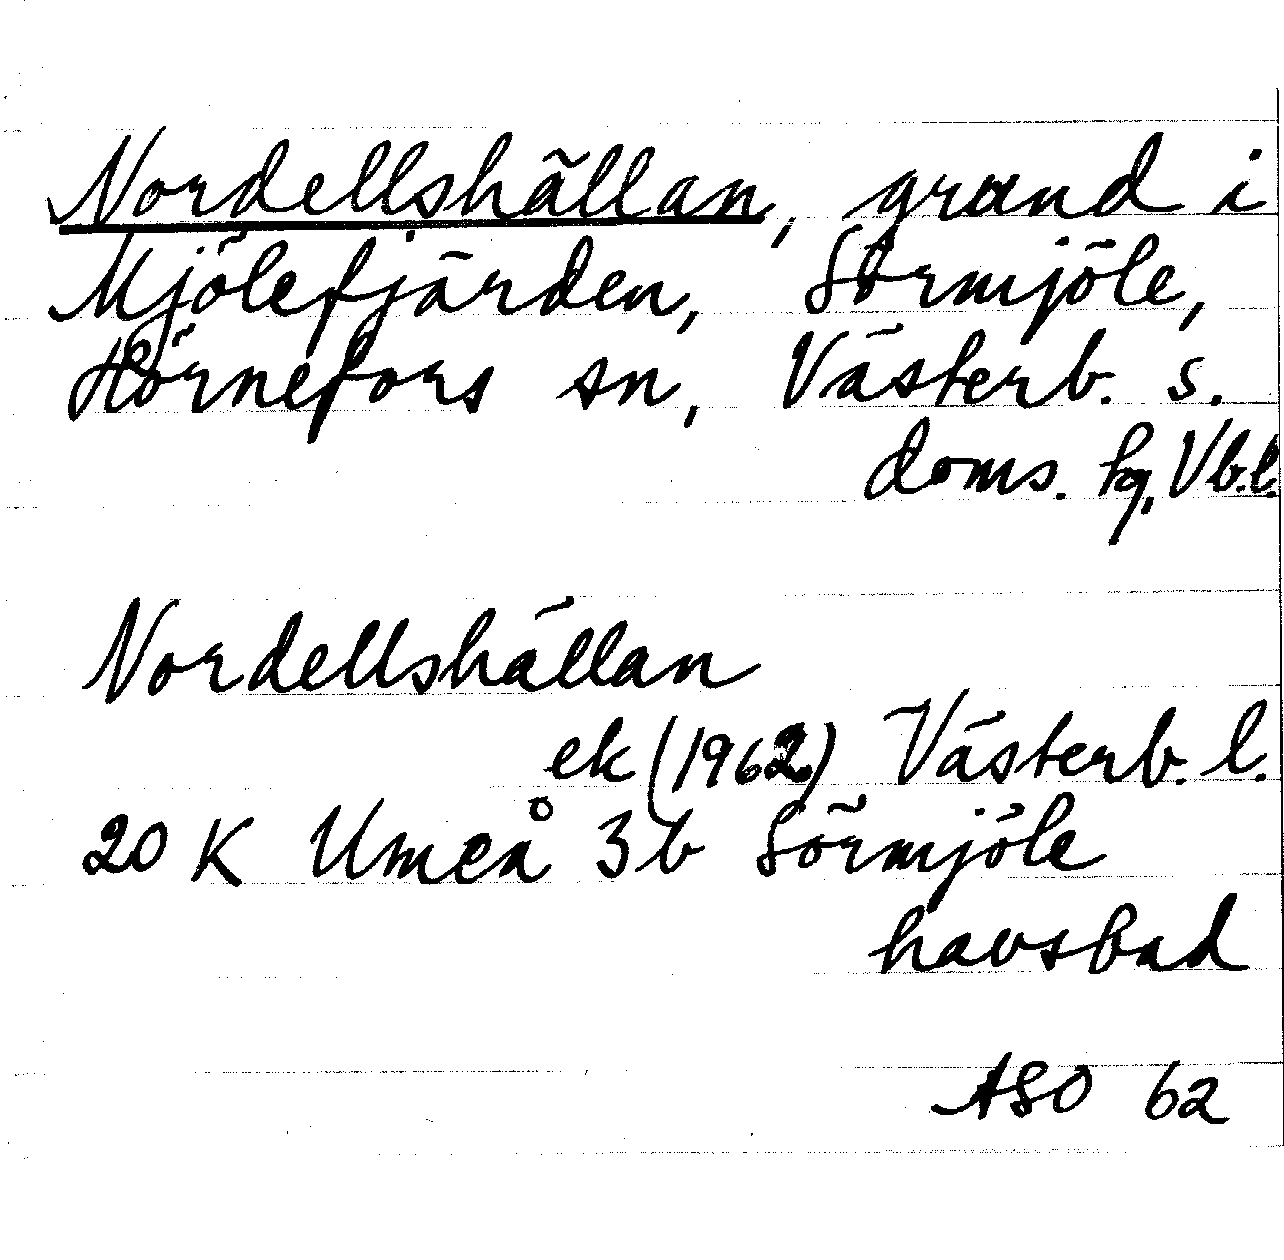 Nordellshällan, grund i
Mjölefjärden, Sörmjöle,
Hörnefors sn, Västerb. s.
doms. hg, Vb.l.
Nordellshällan
ek (1962) Västerb. l.
20 K Umeå 3b Sörmjöle
havsbad
ASO 62